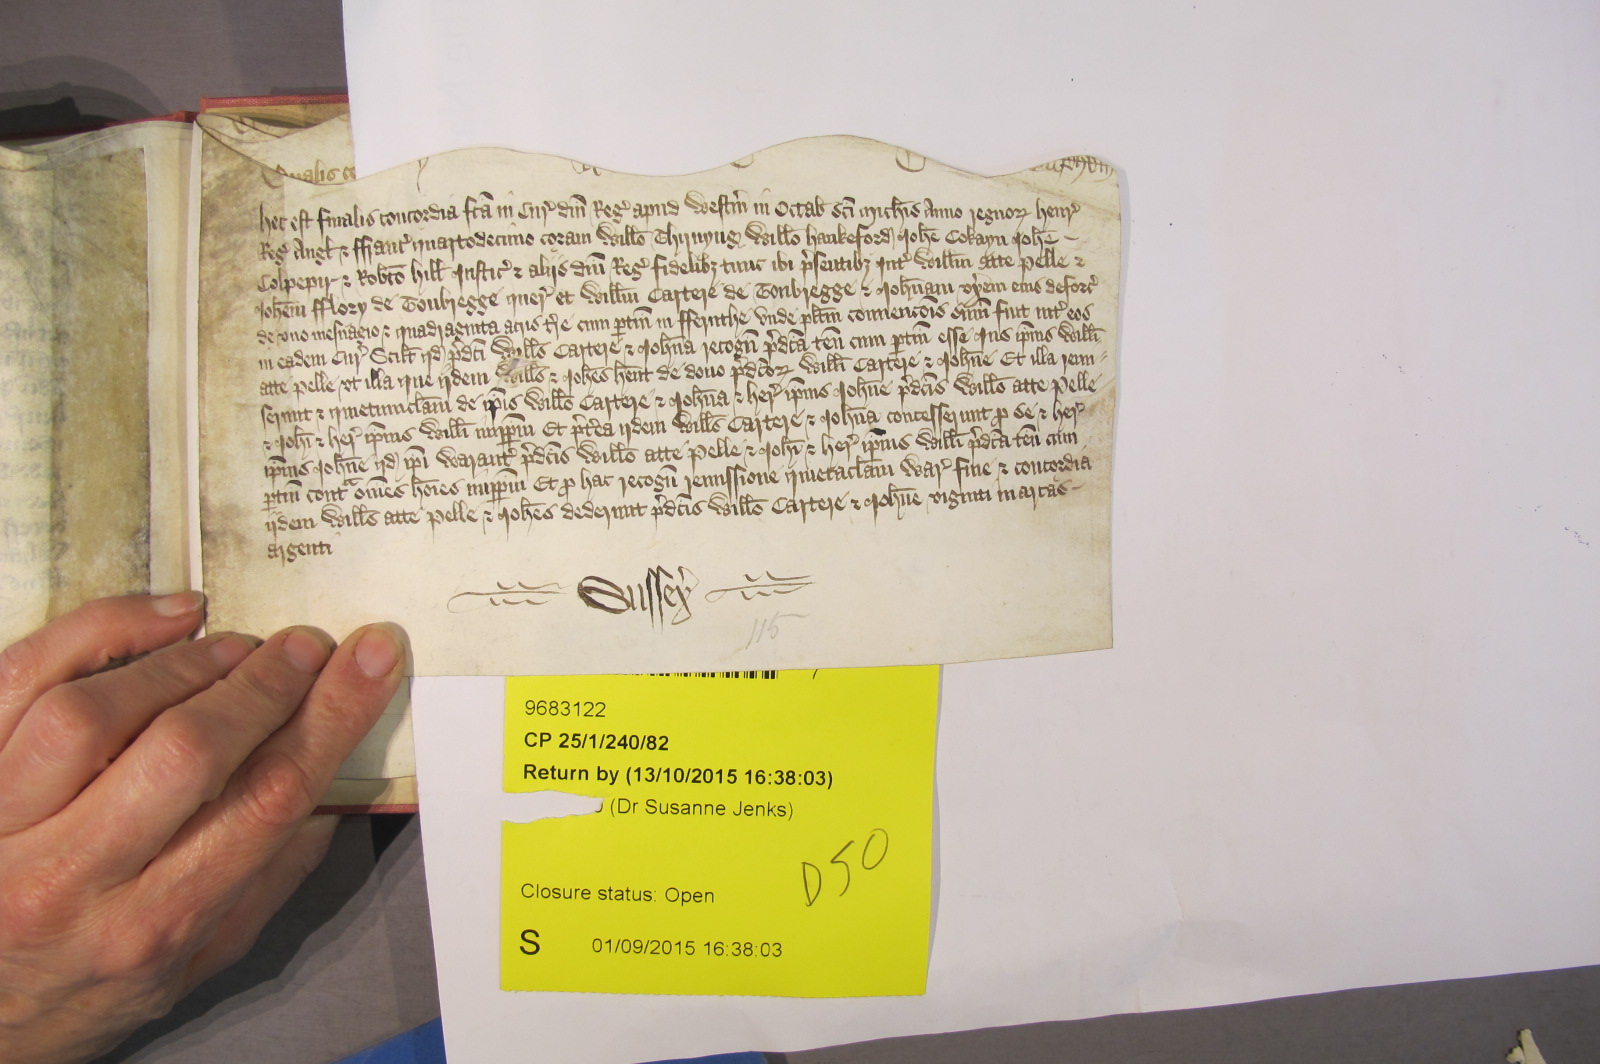 hec est finalis concordia fca in Cur dni Reg apud Westm in Octab sci Michis Anno regnor Henr
Reg Angl & Ffranc quartodecimo coram Willo Thirnyng Willo Hankeford Johe Cokayn Johe
Colpepir & Robto Hill Justic & aliis dni Reg fidelibz tunc ibi psentibz Int Willm atte Pelle &
Johem Fflory de Tonbregge quer et Willm Cartere de Tonbregge & Johnam uxem eius deforc
de uno mesuagio & quadraginta acris tre cum ptin in Ffernthe unde plitm convencois sum fuit int eos
in eadem Cur Scilt qd pdci Wills Cartere & Johna recogn pdca ten cum ptin esse Jus ipius Willi
atte Pelle ut illa que iidem Wills & Johes hent de dono pdcor Willi Cartere & Johne Et illa remi
serunt & quietumclam de ipis Willo Cartere & Johna & her ipius Johne pdcis Willo atte Pelle
& Johi & her ipius Willi imppm Et prea iidem Wills Cartere & Johna concesserunt p se & her
ipius Johne qd ipi warant pdcis Willo atte Pelle & Johi & her ipius Willi pdca ten cum
ptin cont omes hoies imppm Et p hac recogn remissione quietaclam war fine & concordia
iidem Wills atte Pelle & Johes dederunt pdcis Willo Cartere & Johne viginti marcas
argenti
Sussex
115
9683122
CP 25/1/240/82
Return by (13/10/2015 16:38:03)
(Dr Susanne Jenks)
D50
Closure status: Open
S 01/09/2015 16:38:03